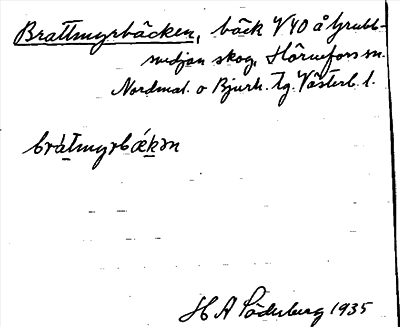 Brattmyrbäcken, bäck V 40 å Grubb-
svedjan skog, Hörnefors sn.
Nordmal. o Bjurh. tg. Västerb. l.
bràtmyrbǽkən
H A Söderberg 1935